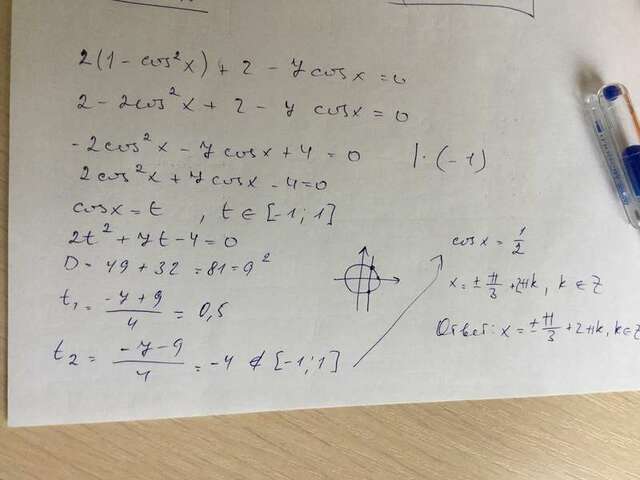 2(1 - cos²x) + 2 - 7cosx = 0
2 - 2cos²x + 2 - 7 cosx = 0
-2cos²x - 7cosx + 4 = 0 |· (-1)
2cos²x + 7cosx - 4 = 0
cosx = t , t ∈ [-1; 1]
2t² + 7t - 4 = 0
D = 49 + 32 = 81 = 9²
t₁ = (-7 + 9)/4 = 0,5
t₂ = (-7 - 9)/4 = -4 ∉ [-1; 1]
cosx = 1/2
x = ± π/3 + 2πk, k ∈ Z
Ответ: x = ± π/3 + 2πk, k ∈ Z